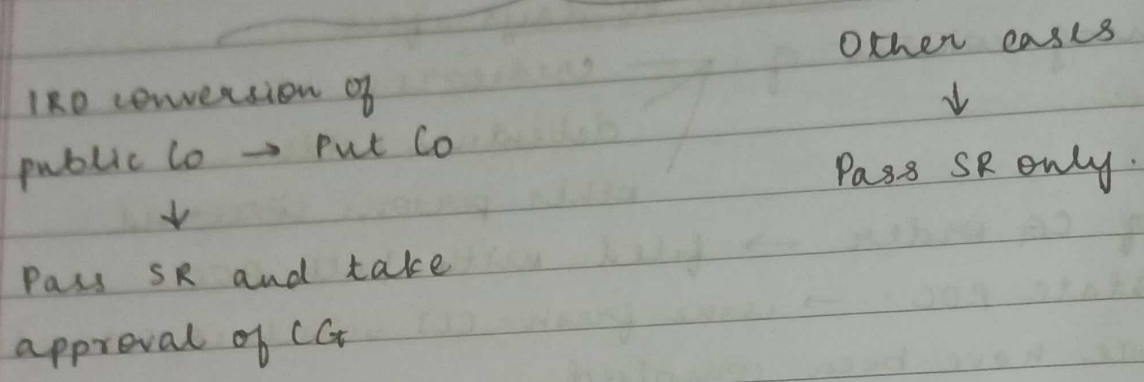 IRO conversion of
public Co → Pvt Co
↓
Pass SR and take
approval of CG
Other cases
↓
Pass SR only.